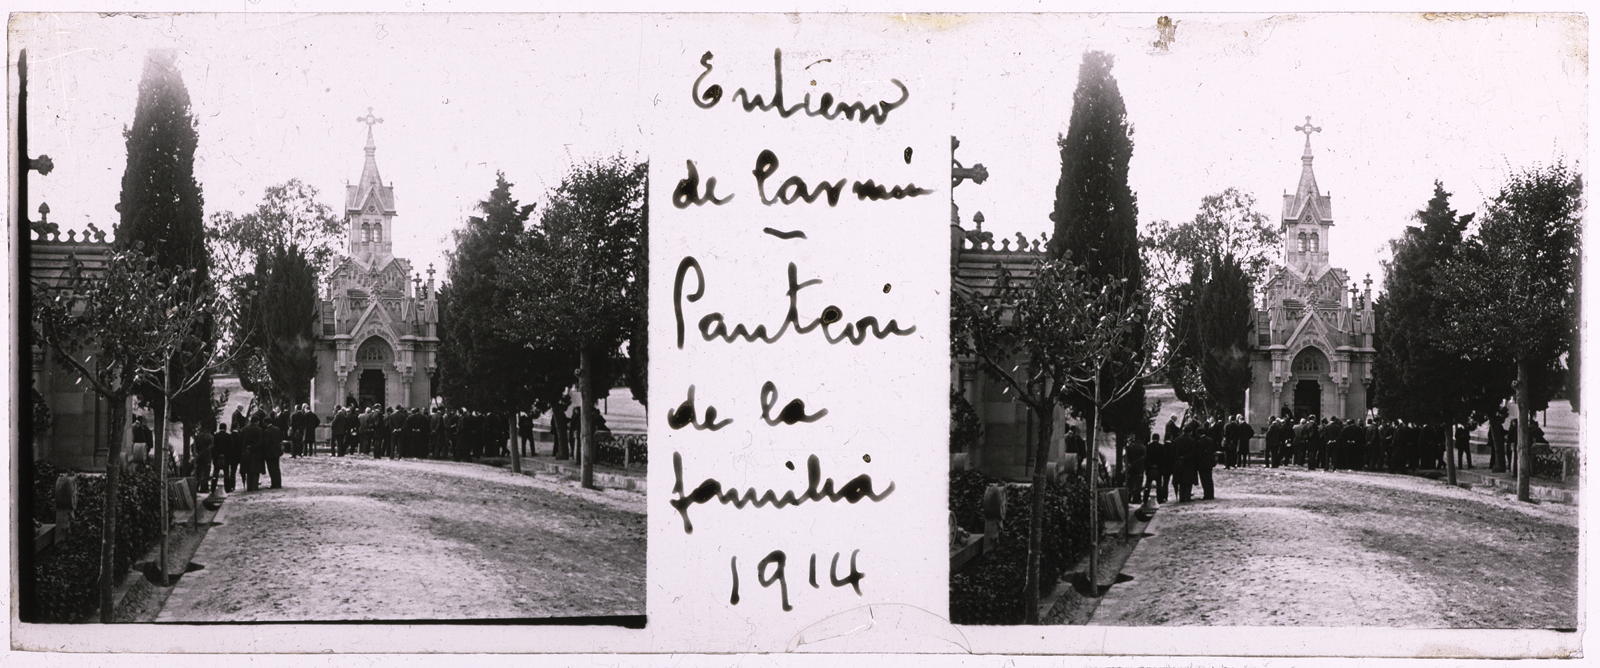 Entierro
de Carmen
—
Panteon
de la
familia
1914